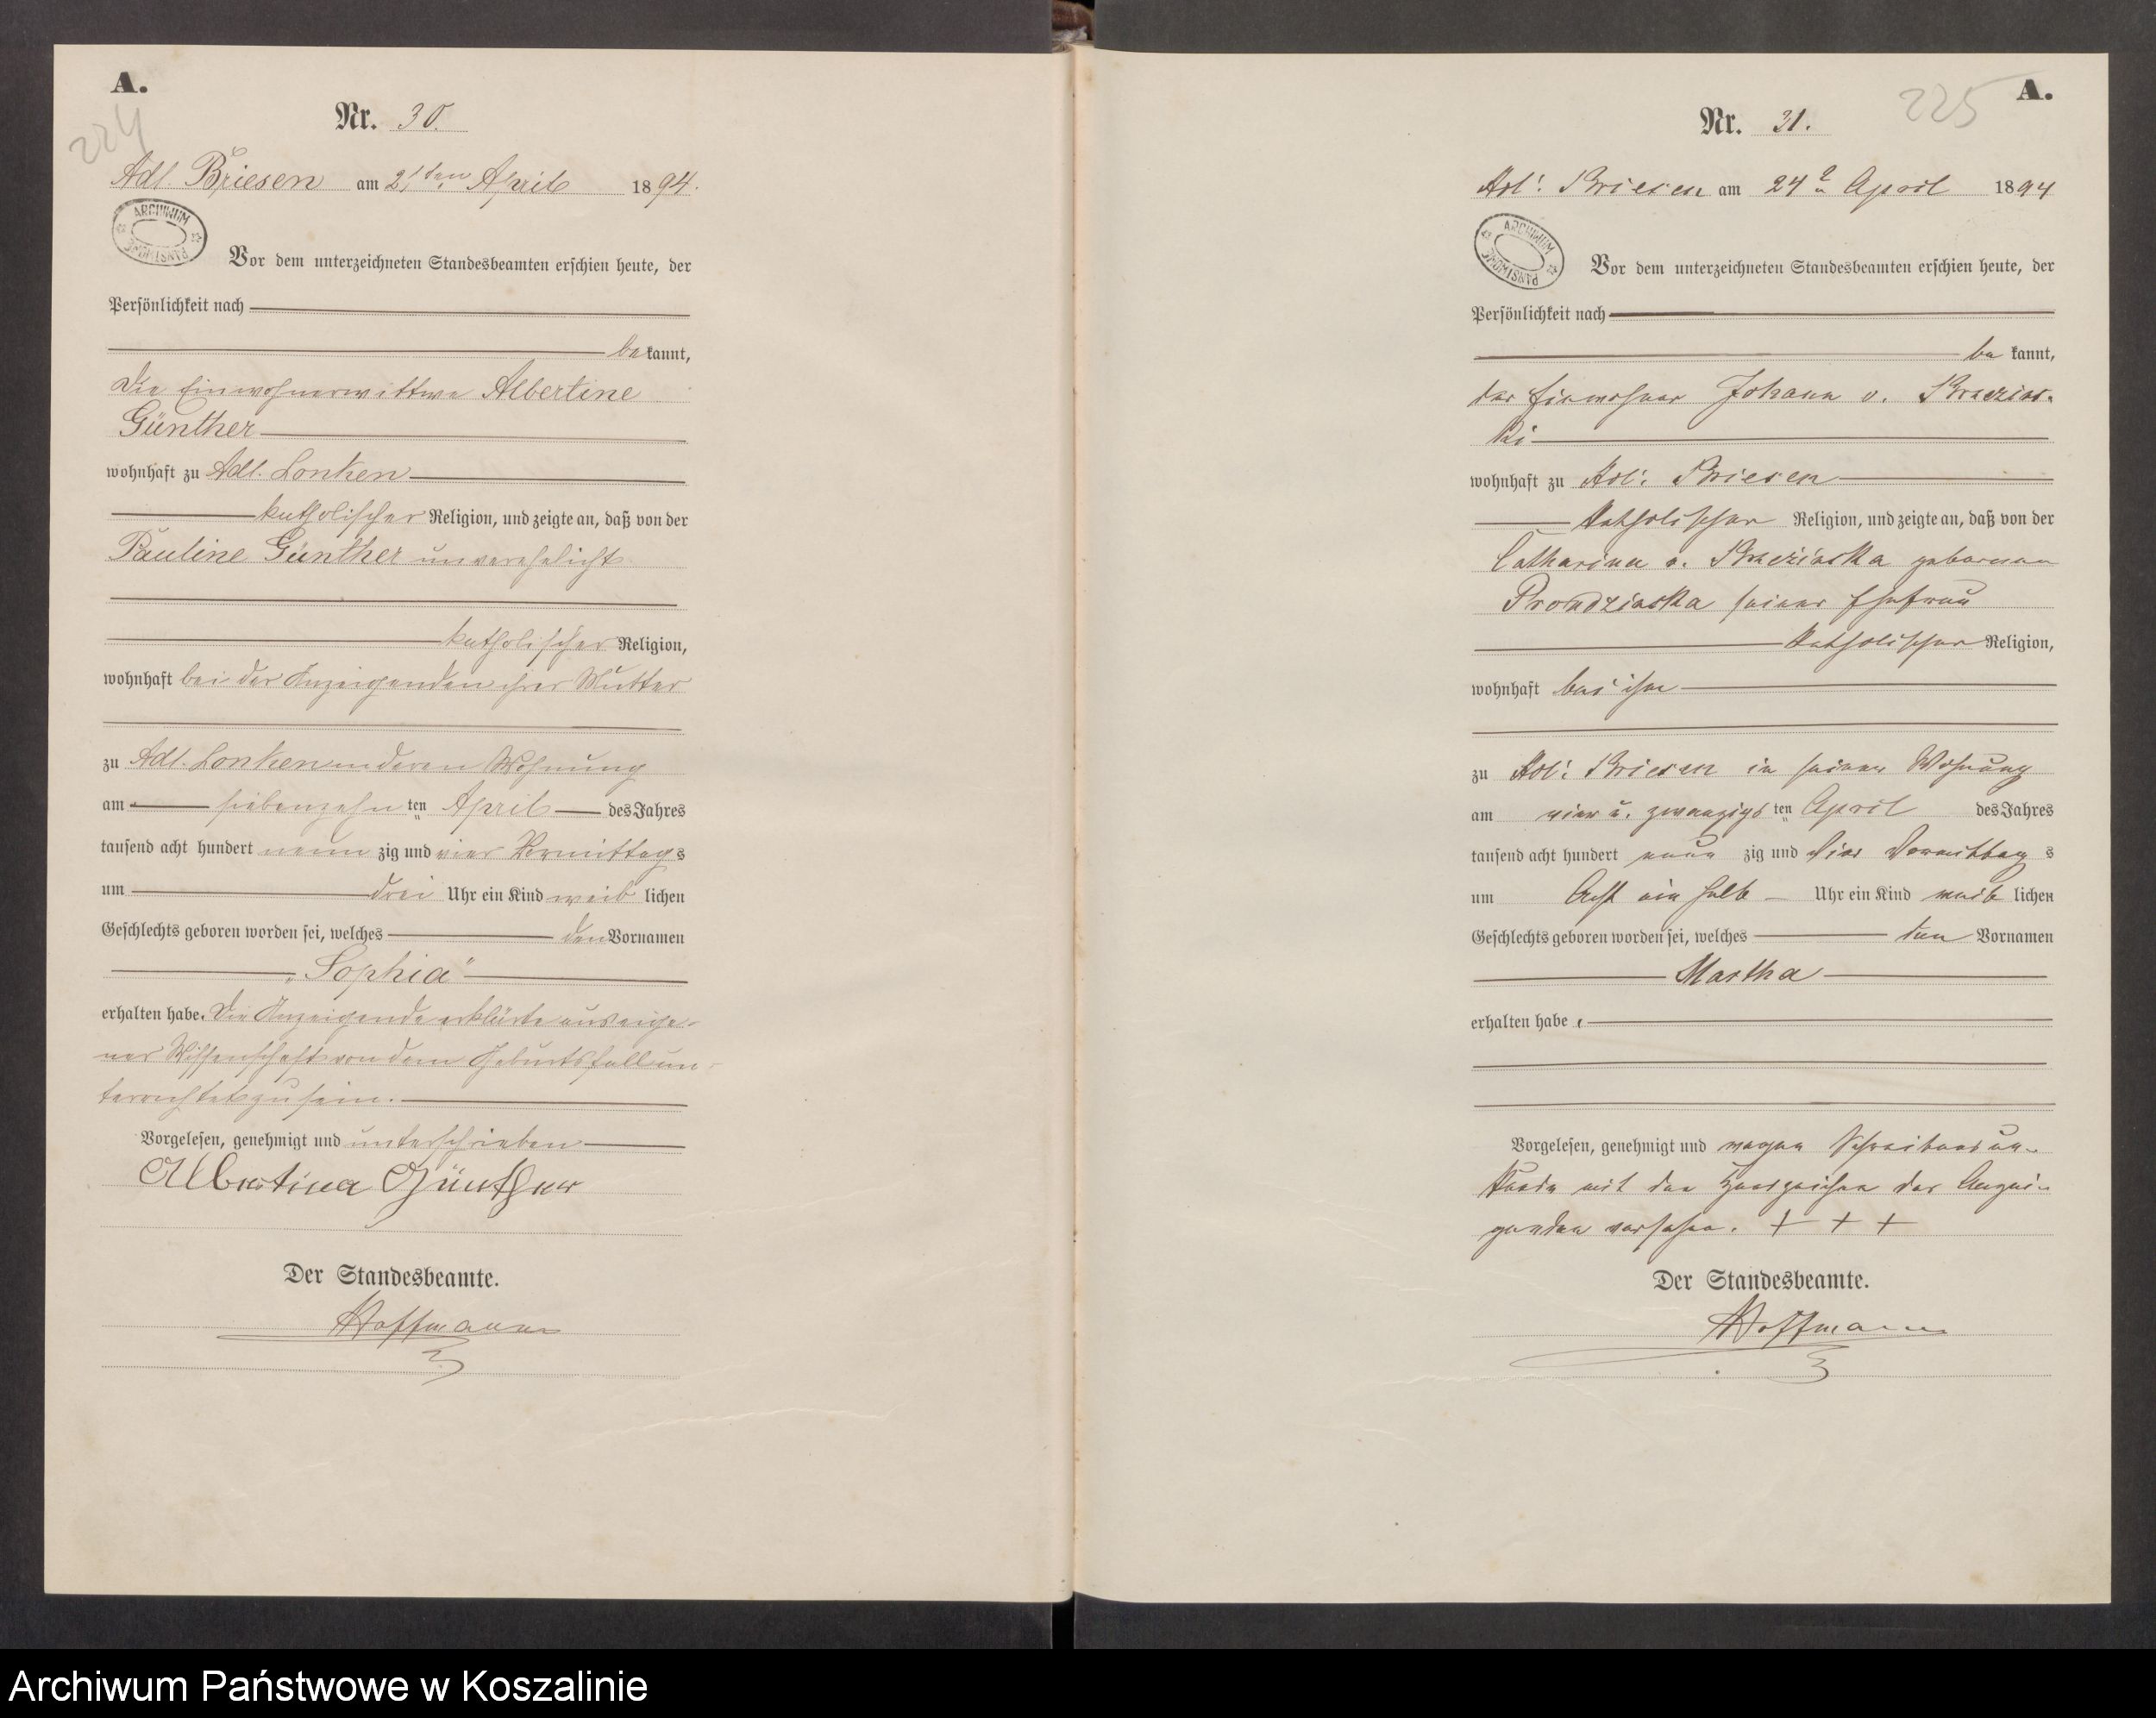 A.
224
Nr. 30.
Adl. Briesen am 21ten April 1894.
ARCHIWUM PAŃSTWOWE
Vor dem unterzeichneten Standesbeamten erschien heute, der
Persönlichkeit nach
bekannt,
die Einwohnerwittwe Albertine
Günther
wohnhaft zu Adl. Lonken
katholischer Religion, und zeigte an, daß von der
Pauline Günther unverehelicht
katholischer Religion,
wohnhaft bei der Anzeigenden ihrer Mutter
zu Adl. Lonken in deren Wohnung
am siebenzehn ten April des Jahres
tausend acht hundert neun zig und vier Vormittags
um drei Uhr ein Kind weib lichen
Geschlechts geboren worden sei, welches den Vornamen
„Sophia"
erhalten habe. Die Anzeigende erklärte aus eige-
ner Wissenschaft von dem Geburtsfall un-
terrichtet zu sein.
Vorgelesen, genehmigt und unterschrieben
Albertina Günther
Der Standesbeamte.
Hoffmann
A.
225
Nr. 31.
Adl. Briesen am 24t April 1894
ARCHIWUM PAŃSTWOWE
Vor dem unterzeichneten Standesbeamten erschien heute, der
Persönlichkeit nach
be kannt,
der Einwohner Johann v.
ki
wohnhaft zu Adl. Briesen
katholischer Religion, und zeigte an, daß von der
Catharina v. geborenen
Prondzinska seiner Ehefrau
katholischer Religion,
wohnhaft bei ihm
zu Adl. Briesen in seiner Wohnung
am vier u. zwanzigs ten April des Jahres
tausend acht hundert neun zig und vier Vormittag s
um Acht ein halb Uhr ein Kind weib lichen
Geschlechts geboren worden sei, welches den Vornamen
Martha
erhalten habe.
Vorgelesen, genehmigt und wegen Schreibensun-
kunde mit den Handzeichen des Anzei-
genden versehen. + + +
Der Standesbeamte.
Hoffmann
Archiwum Państwowe w Koszalinie